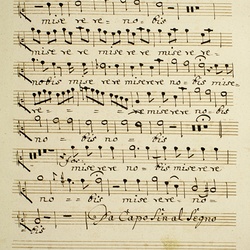 mise re re = no = bis
mise re re mise re re mise re re =
no bis mise rere miserere no = bis mise =
re = = = re miserere no =
bis no = bis
Solo miserere no = bis miserere
no = = bis mise rere = no =
bis Da Capo Sin al Segno